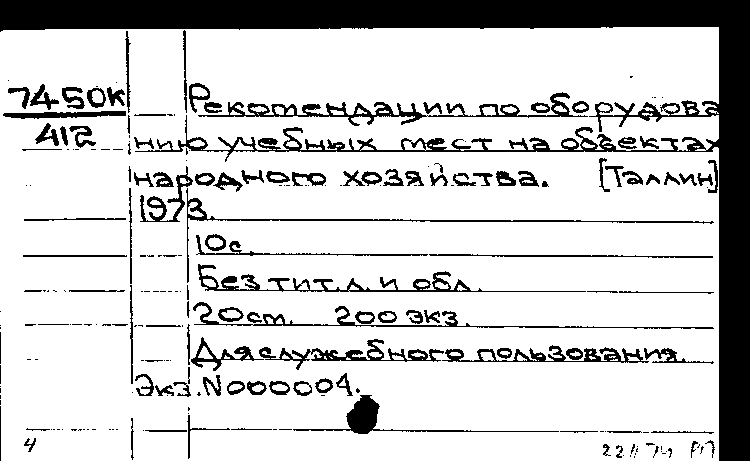 74-50К
412
Рекомендации по оборудова
нию учебных мест на объектах
народного хозяйства. [Таллин]
1973.
10с.
Без тит.л. и обл.
20cm. 200 экз.
Для служебного пользования.
Экз.N000004.
4